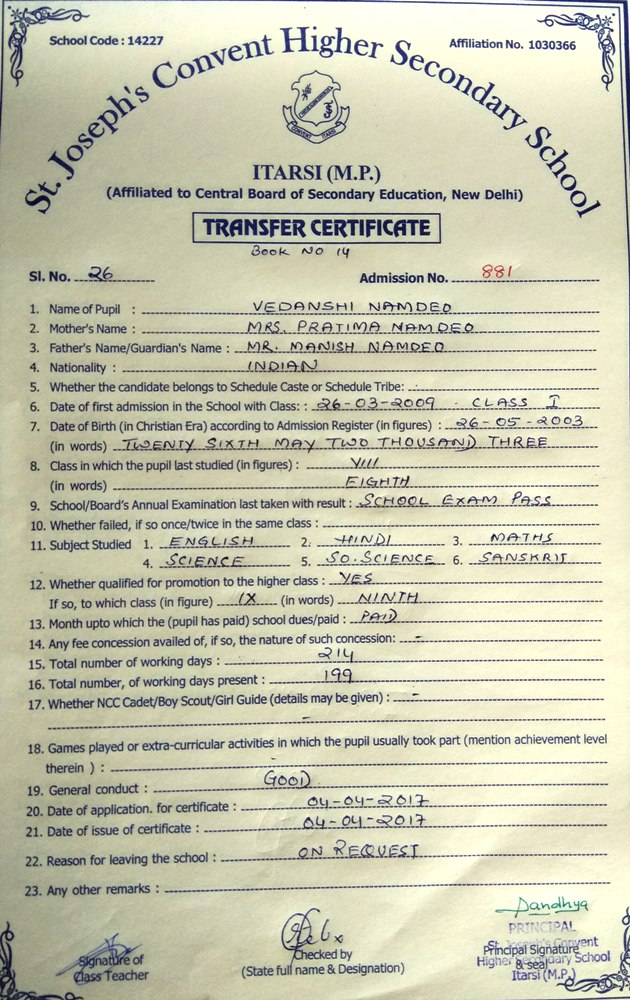 School Code : 14227
Affiliation No. 1030366
St. Joseph's Convent Higher Secondary School
CONVENT ITARSI
ITARSI (M.P.)
(Affiliated to Central Board of Secondary Education, New Delhi)
TRANSFER CERTIFICATE
BOOK NO 14
Sl. No. 26 Admission No. 881
1. Name of Pupil : VEDANSHI NAMDEO
2. Mother's Name : MRS. PRATIMA NAMDEO
3. Father's Name/Guardian's Name : MR. MANISH NAMDEO
4. Nationality : INDIAN
5. Whether the candidate belongs to Schedule Caste or Schedule Tribe:
6. Date of first admission in the School with Class: : 26-03-2009 - CLASS I
7. Date of Birth (in Christian Era) according to Admission Register (in figures) : 26-05-2003
(in words) TWENTY SIXTH MAY TWO THOUSAND THREE
8. Class in which the pupil last studied (in figures) : VIII
(in words) EIGHTH
9. School/Board's Annual Examination last taken with result : SCHOOL EXAM PASS
10. Whether failed, if so once/twice in the same class :
11. Subject Studied 1. ENGLISH 2. HINDI 3. MATHS
4. SCIENCE 5. SO.SCIENCE 6. SANSKRIT
12. Whether qualified for promotion to the higher class : YES
If so, to which class (in figure) IX (in words) NINTH
13. Month upto which the (pupil has paid) school dues/paid : PAID
14. Any fee concession availed of, if so, the nature of such concession: -
15. Total number of working days : 214
16. Total number, of working days present : 199
17. Whether NCC Cadet/Boy Scout/Girl Guide (details may be given) : -
-
18. Games played or extra-curricular activities in which the pupil usually took part (mention achievement level
therein ) : -
19. General conduct : GOOD
20. Date of application. for certificate : 04-04-2017
21. Date of issue of certificate : 04-04-2017
22. Reason for leaving the school : ON REQUEST
23. Any other remarks :
Signature of
Class Teacher
Checked by
(State full name & Designation)
PRINCIPAL
St. Joseph's Convent
Principal Signature
Higher Secondary School
& seal
Itarsi (M.P.)